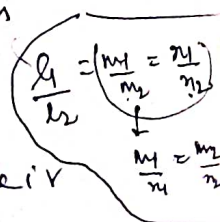 s
l₁/l₂ = m₁/m₂ = n₁/n₂
↓
m₁/n₁ = m₂
eir